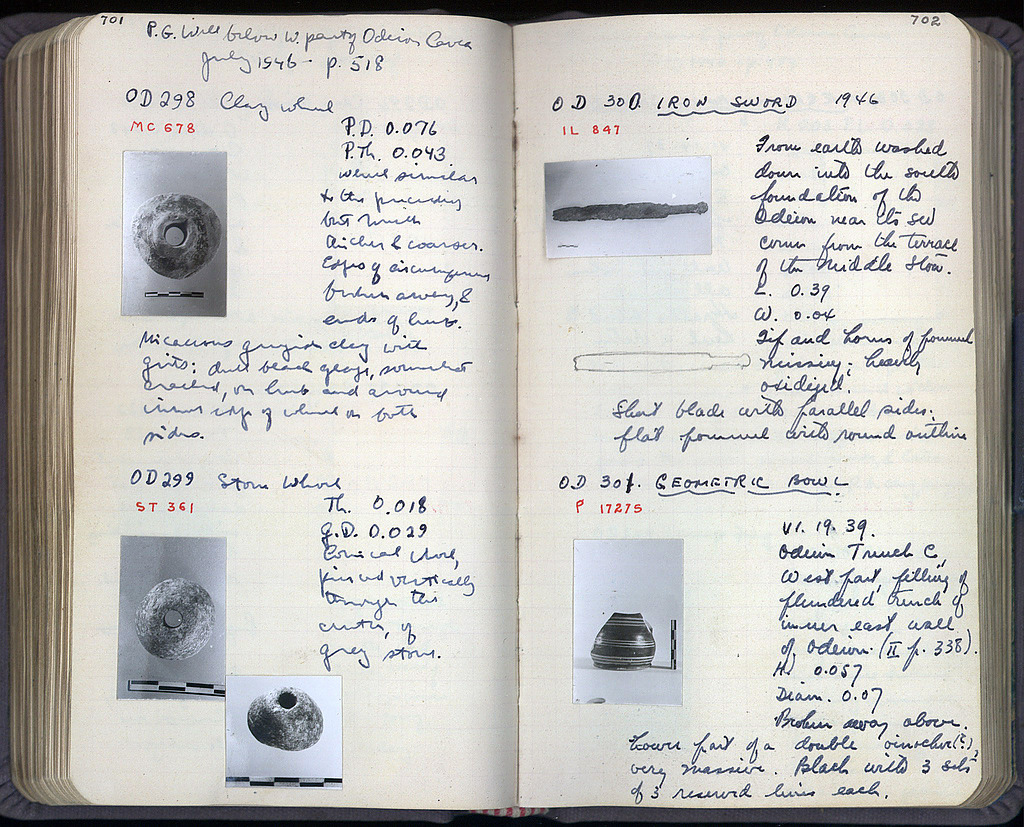 701
P.G. Well below W. part of Odeion Cavea
July 1946 - p. 518
OD 298 Clay wheel
MC 678
P.D. 0.076
P.Th. 0.043.
Wheel similar
to the preceding
but much
thicker & coarser.
Edges of circumference
broken away, &
ends of hub.
Micaceous greyish clay with
grits: dull black glaze, somewhat
cracked, on hub and around
inner edge of wheel on both
sides.
OD 299 Stone Whorl
ST 361
Th. 0.018
G.D. 0.029
Conical whorl,
pierced vertically
through the
center, of
grey stone.
702
OD 300. IRON SWORD 1946
IL 847
From earth washed
down into the south
foundation of the
Odeion near its SW
corner from the terrace
of the Middle Stoa.
L. 0.39
W. 0.04
Tip and horns of pommel
missing; heavily
oxidized.
Short blade with parallel sides.
flat pommel with round outline
OD 301. GEOMETRIC BOWL
P 17275
VI. 19. 39.
Odeion Trench C,
West part, filling of
plundered trench of
inner east wall
of Odeion. (II p. 338).
H. 0.057
Diam. 0.07
Broken away above.
Lower part of a double oinochoe(?),
very massive. Black with 3 sets
of 3 reserved lines each.